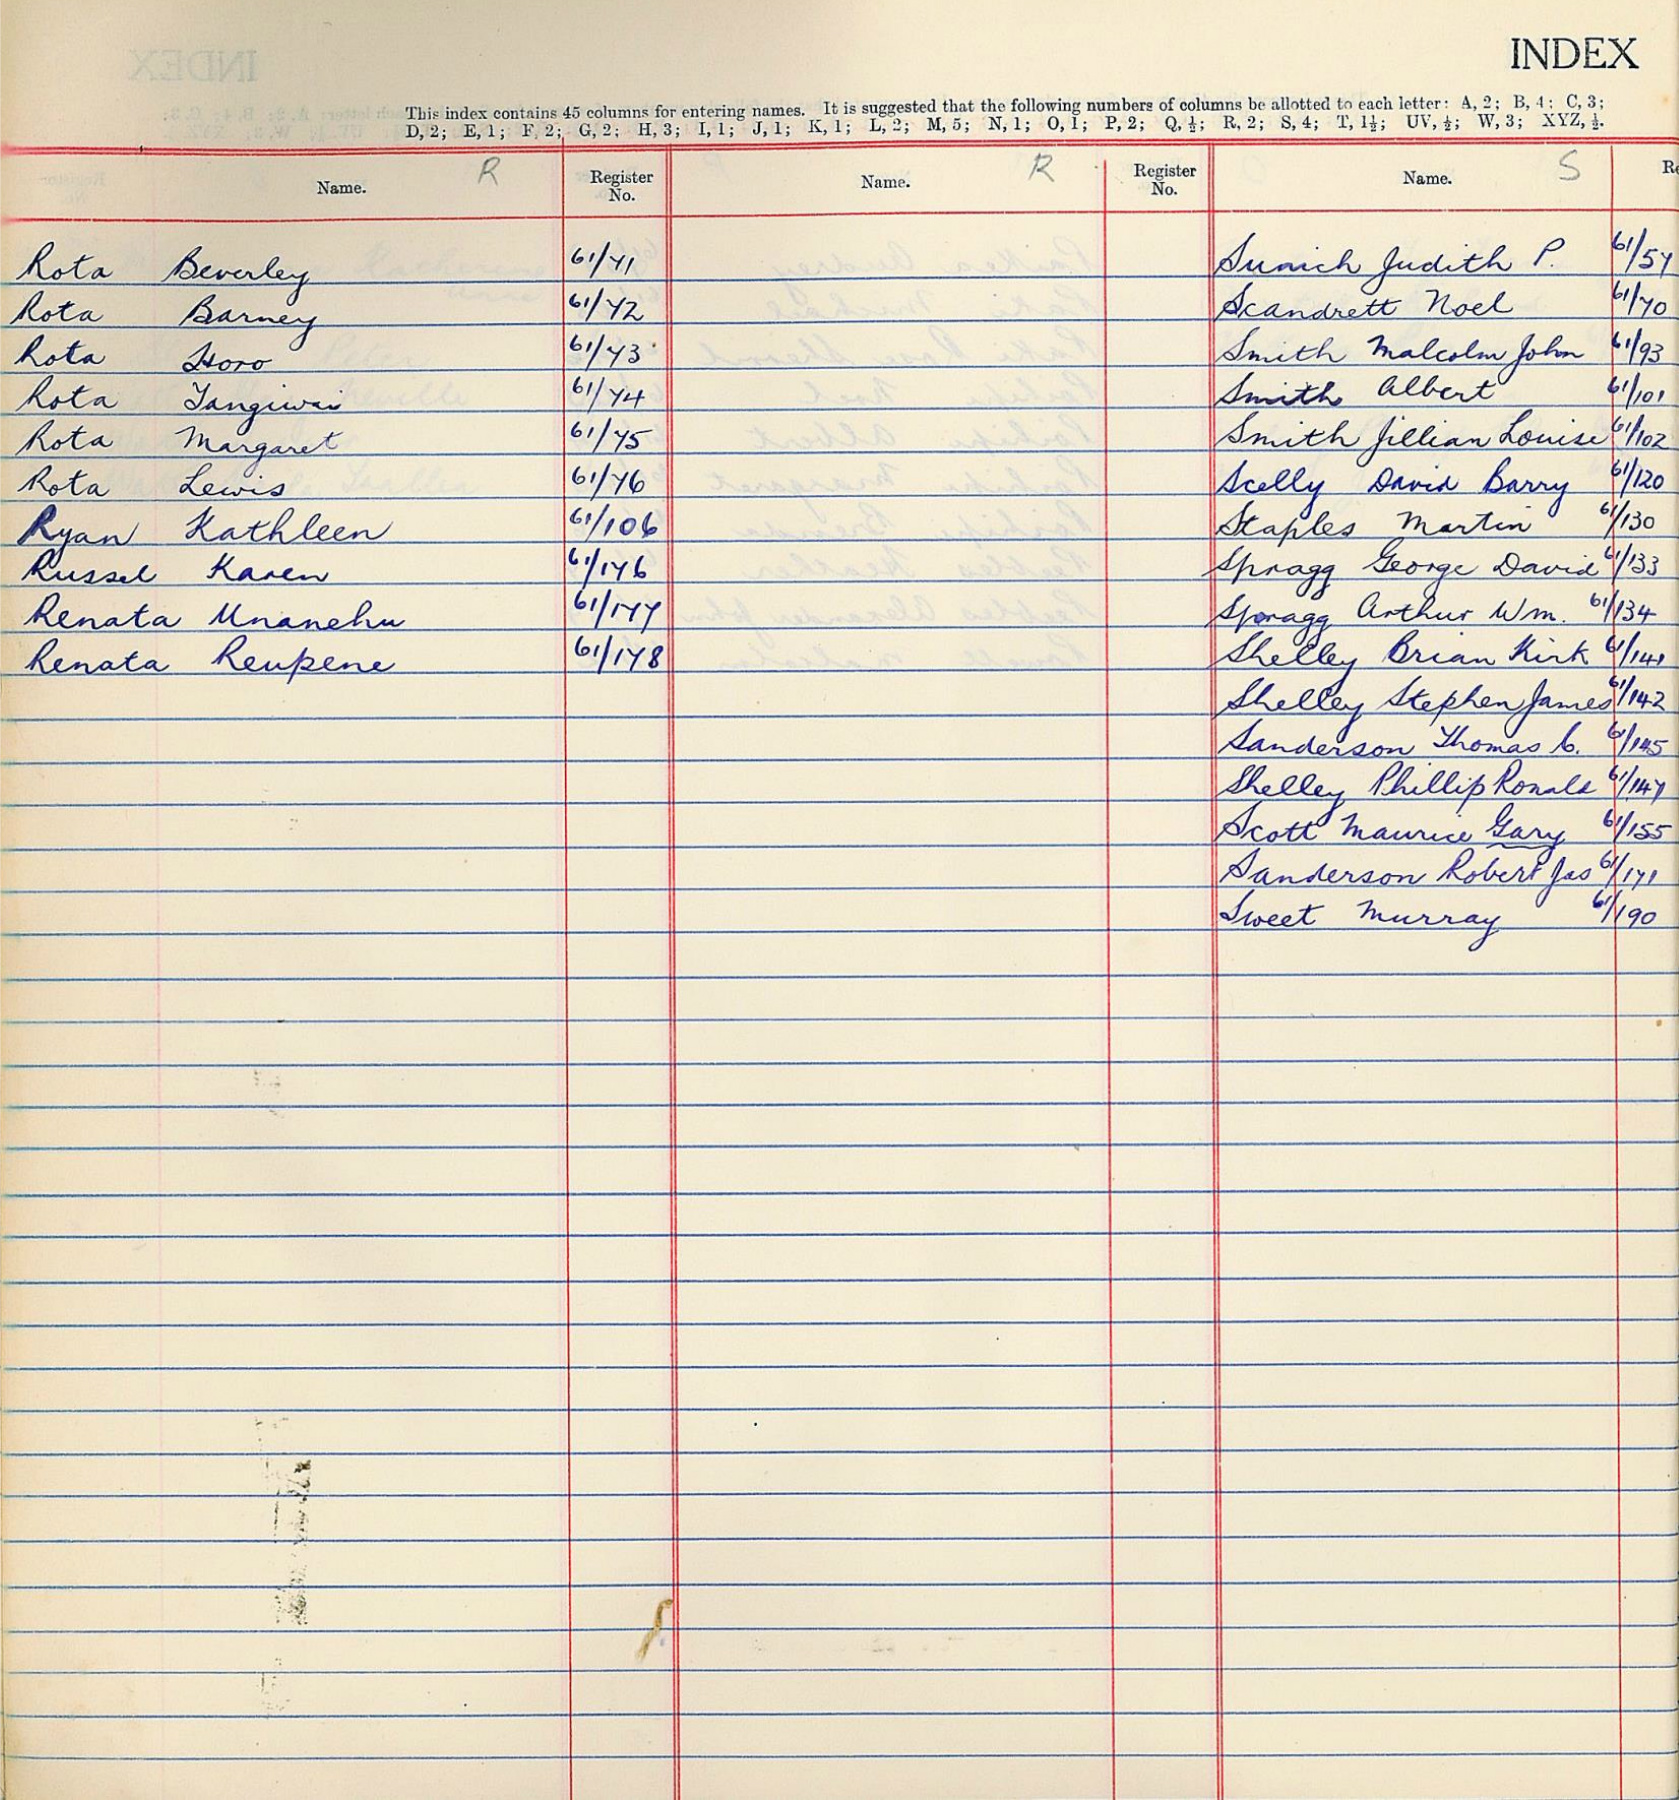 INDEX
This index contains 45 columns for entering names. It is suggested that the following numbers of columns be allotted to each letter: A, 2; B, 4; C, 3;
D, 2; E, 1; F, 2; G, 2; H, 3; I, 1; J, 1; K, 1; L, 2; M, 5; N, 1; O, 1; P, 2; Q, ½; R, 2; S, 4; T, 1½; UV, ½; W, 3; XYZ, ½.
Name. R Register No.
Rota Beverley 61/71
Rota Barney 61/72
Rota Horo 61/73
Rota Tangiwai 61/74
Rota Margaret 61/75
Rota Lewis 61/76
Ryan Kathleen 61/106
Russel Karen 61/176
Renata Unanehu 61/177
Renata Reupene 61/178
Name. R Register No.
Name. S Re
Sunich Judith P. 61/57
Scandrett Noel 61/70
Smith Malcolm John 61/93
Smith Albert 61/101
Smith Jillian Louise 61/102
Scelly David Barry 61/120
Staples Martin 61/130
Spragg George David 61/133
Spragg Arthur Wm. 61/134
Shelley Brian Kirk 61/141
Shelley Stephen James 61/142
Sanderson Thomas C. 61/145
Shelley Phillip Ronald 61/147
Scott Maurice Gary 61/155
Sanderson Robert Jas 61/171
Sweet Murray 61/190